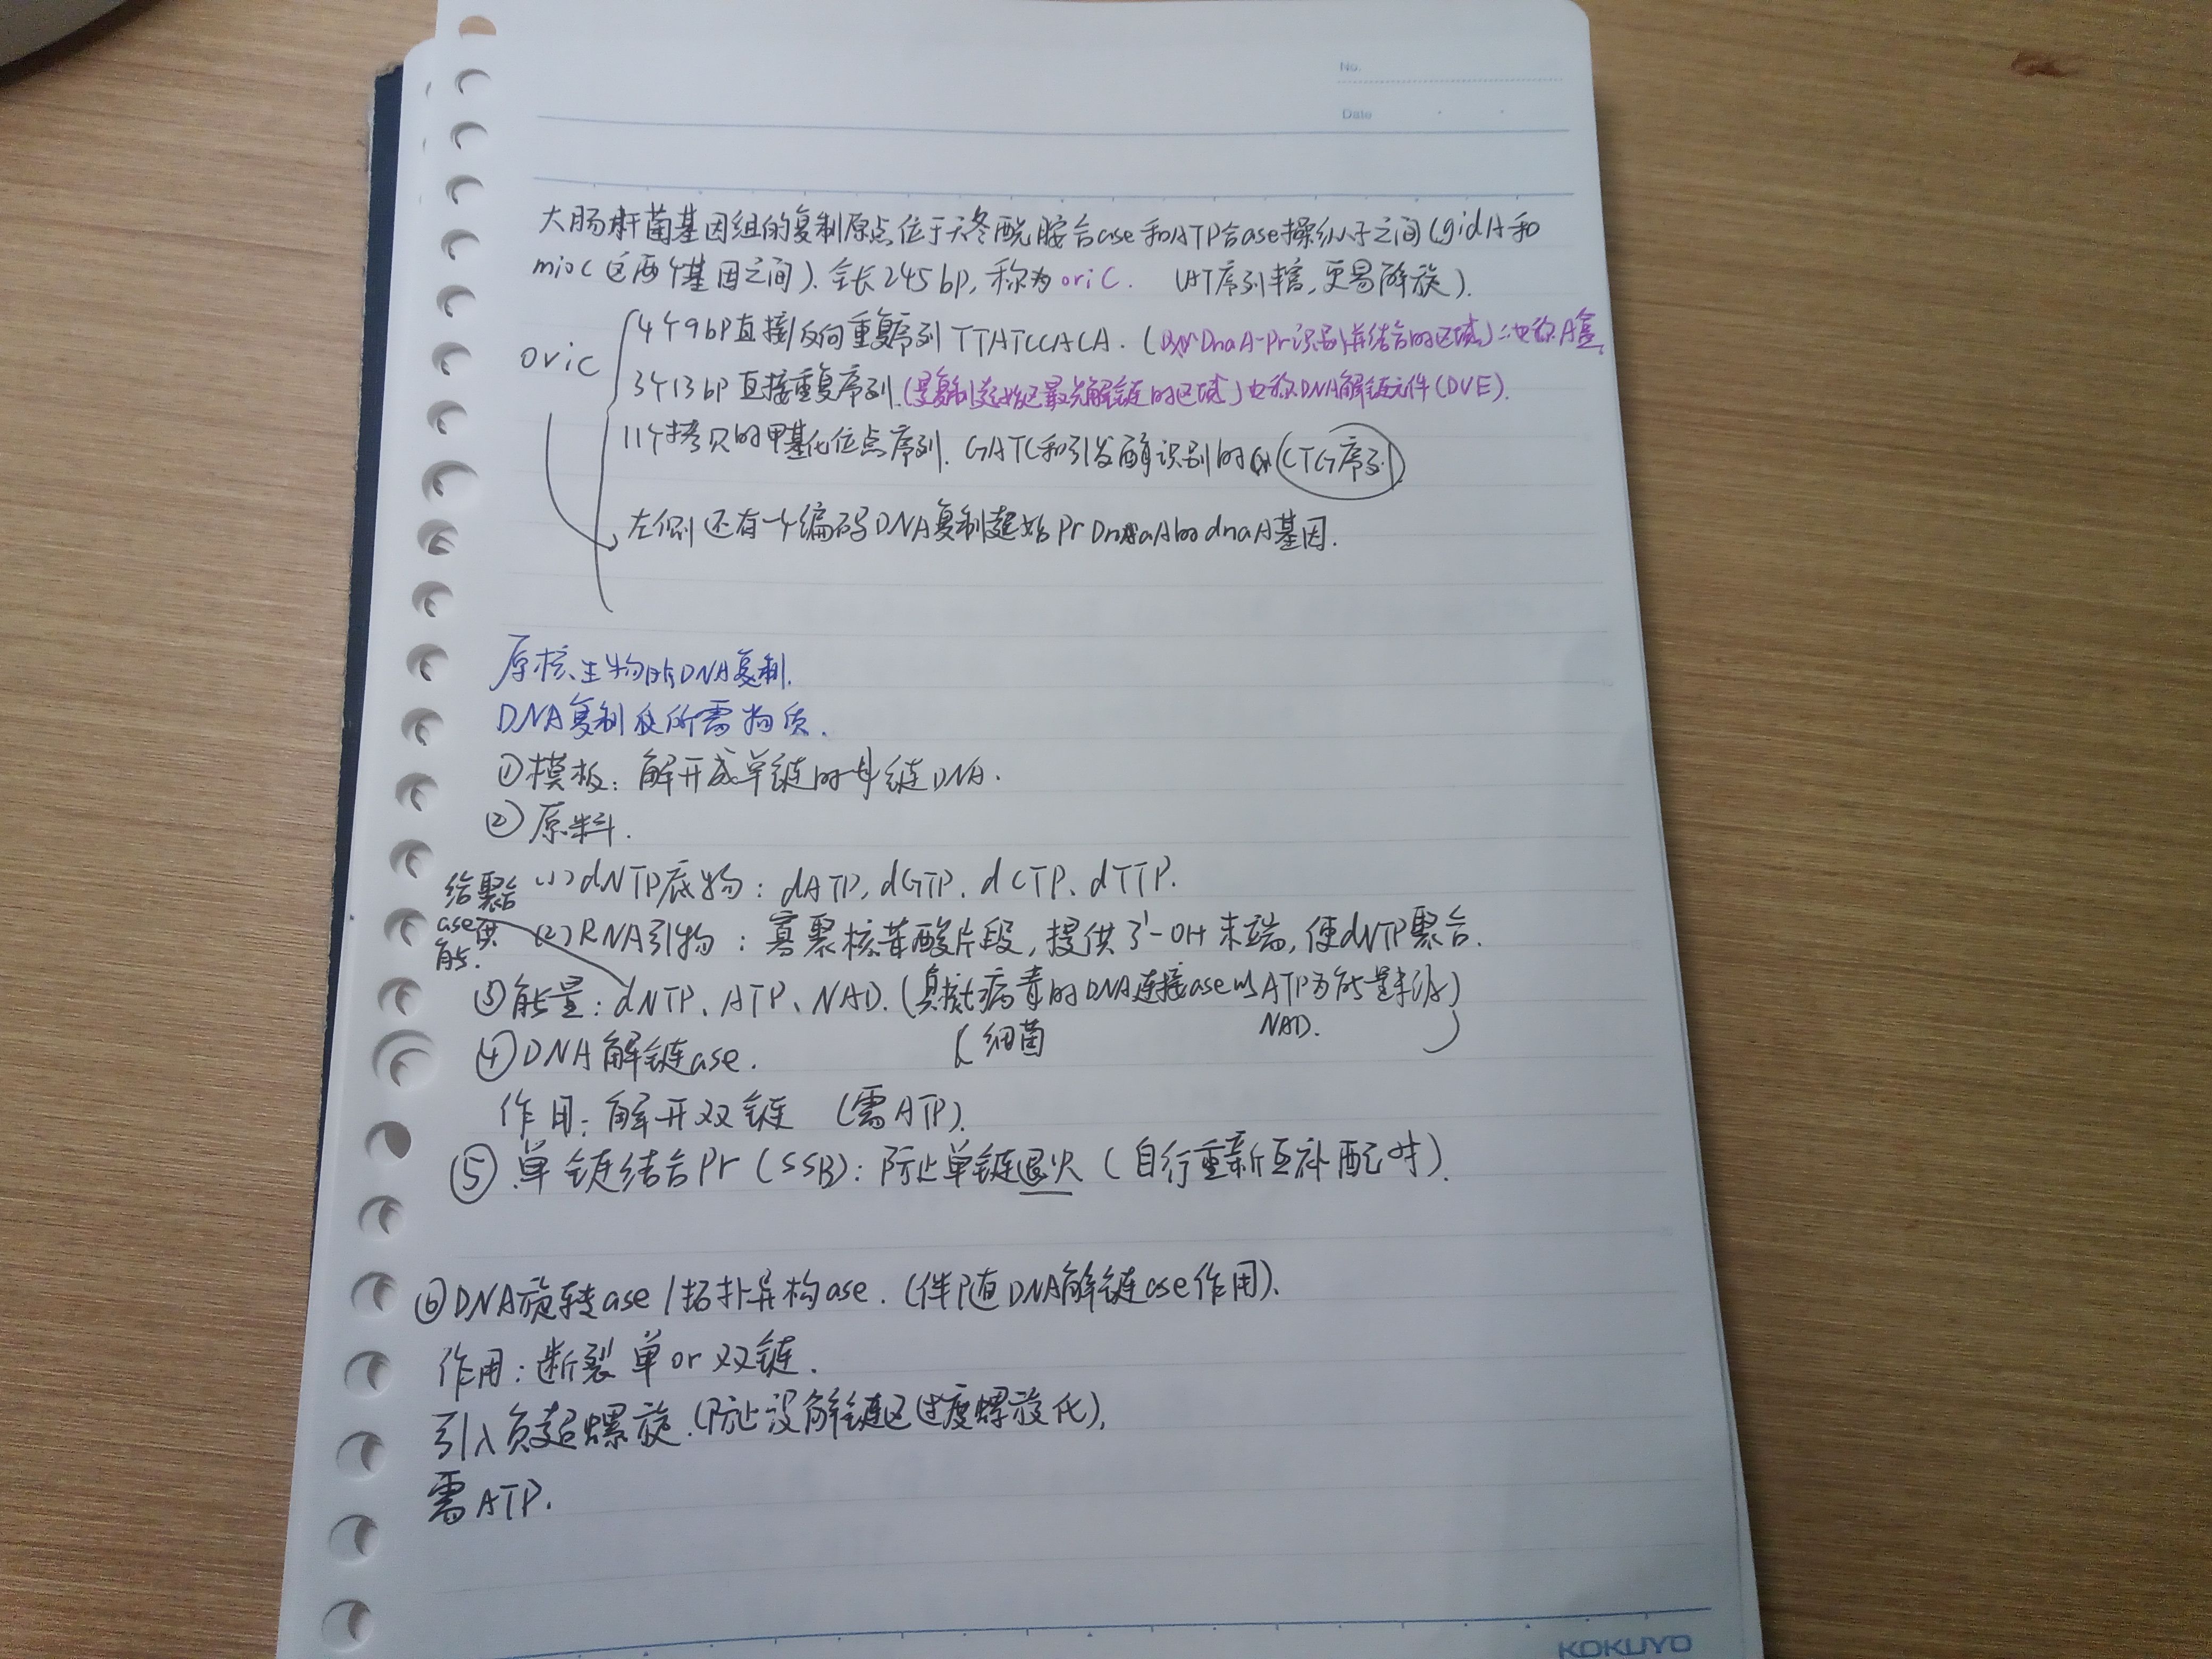 No.
Date
大肠杆菌基因组的复制原点位于天冬酰胺合ase和ATP合ase操纵子之间(gidA和
mioC这两个基因之间).全长245bp,称为oriC. (AT序列丰富,更易解旋).
oriC
4个9bp直接反向重复序列TTATCCACA.(DnaA-Pr识别并结合的区域)也称A盒.
3个13bp直接重复序列.(是复制起始区最先解链的区域)也称DNA解链元件(DUE).
11个拷贝的甲基化位点序列.GATC和引发酶识别的CTG序列.
左侧还有一个编码DNA复制起始Pr DnaA的dnaA基因.
原核生物的DNA复制.
DNA复制所需物质.
①模板:解开成单链的母链DNA.
②原料.
(1)dNTP底物:dATP,dGTP.dCTP、dTTP.
给聚合
ase供
能.
(2)RNA引物:寡聚核苷酸片段,提供3'-OH末端,使dNTP聚合.
③能量:dNTP、ATP、NAD.(真核病毒的DNA连接ase以ATP为能量来源)
(细菌 NAD. )
④DNA解链ase.
作用:解开双链 (需ATP).
⑤单链结合Pr(SSB):防止单链退火(自行重新互补配对).
⑥DNA旋转ase/拓扑异构ase.(伴随DNA解链ase作用).
作用:断裂单or双链.
引入负超螺旋.(防止没解链区过度螺旋化),
需ATP.
KOKUYO